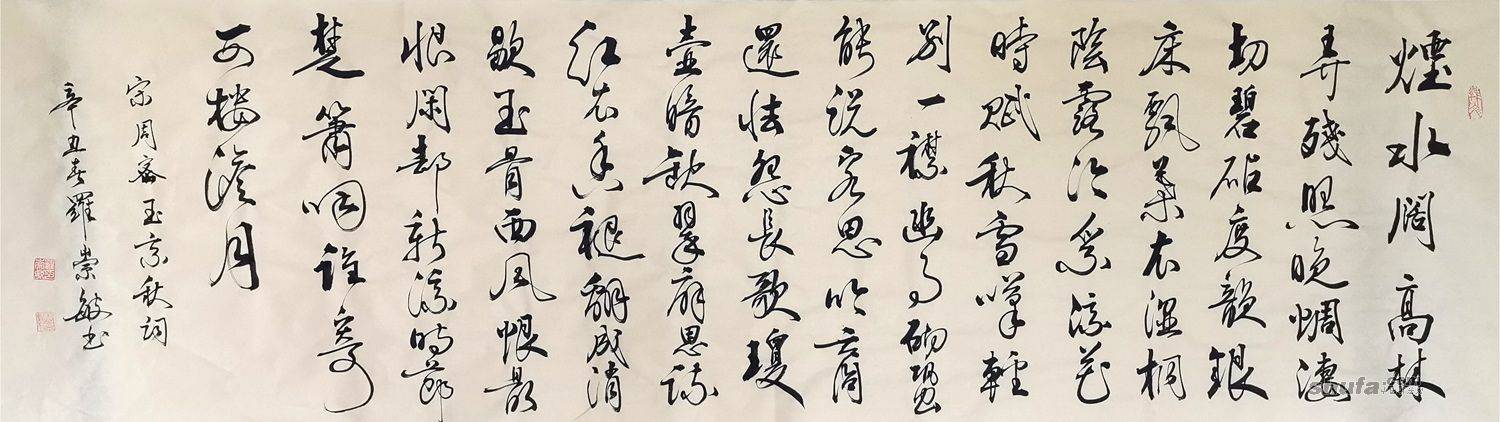 煙水阔高林
弄殘照晚蜩淒
切碧砧度韻銀
床飘葉衣濕桐
陰露冷采凉花
時賦秋雪嘆輕
别一襟幽事砌蛩
能説客思吟商
還怯怨長歌瓊
壺暗缺翠扇恩疏
红衣香褪翻成消
歇玉骨西風恨最
恨閑却新凉時節
楚簫咽誰寄
西樓淡月
宋周密玉京秋詞
辛丑春羅崇敏书